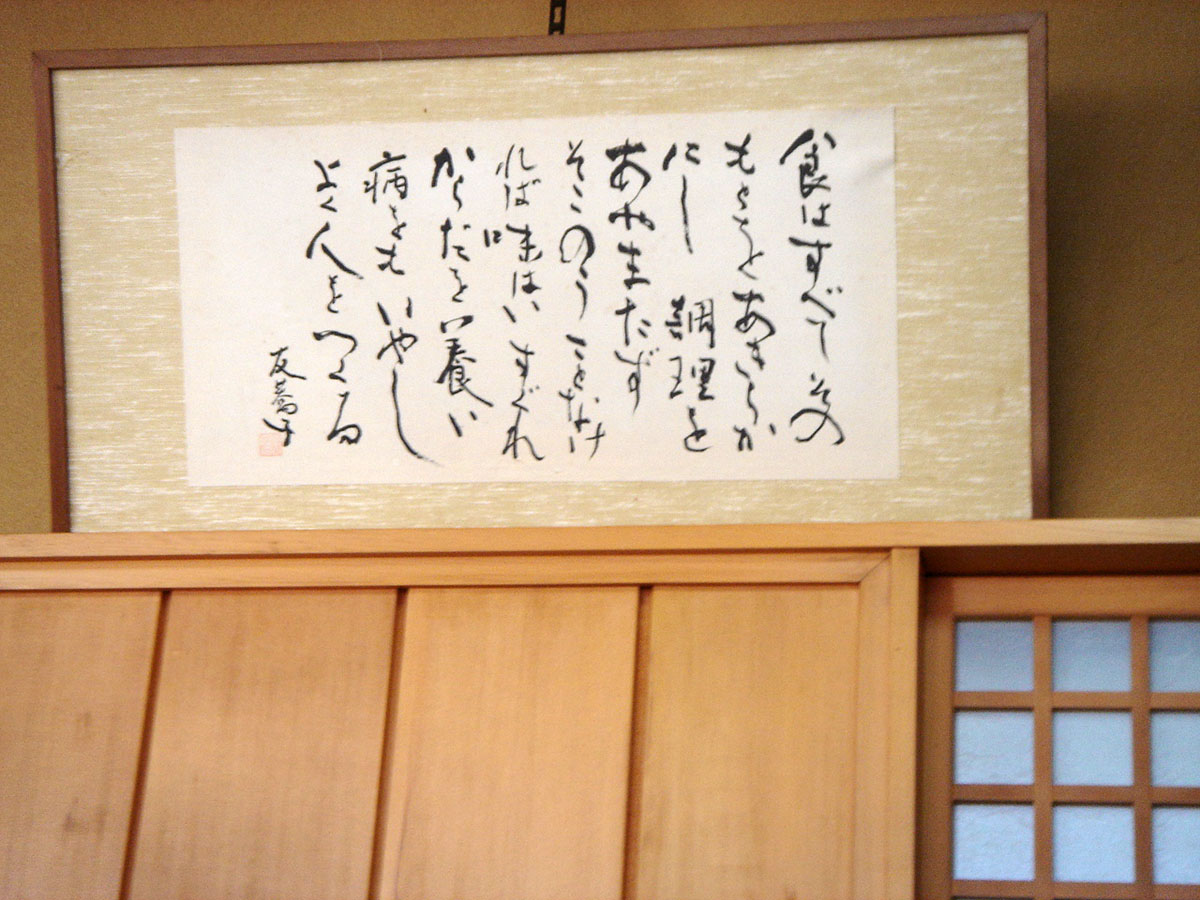 食はすべてその
もとをあきらか
にし 調理を
あやまたず
そこのうことなけ
れば味はいすぐれ
からだを養い
病をもいやし
よく人をつくる